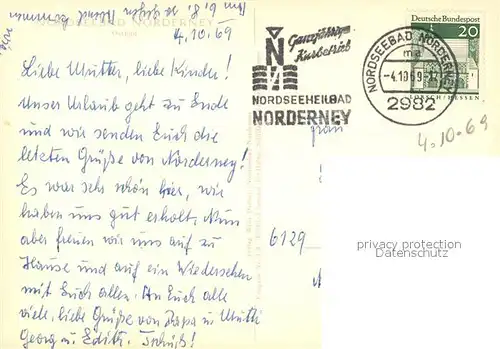 NORDSEEBAD NORDERNEY
4.10.69
Liebe Mutter, liebe Kinder!
Unser Urlaub geht zu Ende
und wir senden Euch die
letzten Grüße von Norderney!
Es war sehr schön hier, wir
haben uns gut erholt. Nun
aber freuen wir uns auf zu
Hause und auf ein Wiedersehen
mit Euch allen. An Euch alle
viele, liebe Grüße von Papa u. Mutti
Georg u. Edith. Tschüß!
Ganzjähriger
Kurbetrieb
N
NORDSEEHEILBAD
NORDERNEY
Deutsche Bundespost
20
LORSCH/HESSEN
NORDSEEBAD NORDERNEY
ma
-4.10.69-12
2982
4.10.69
6129
privacy protection
Datenschutz